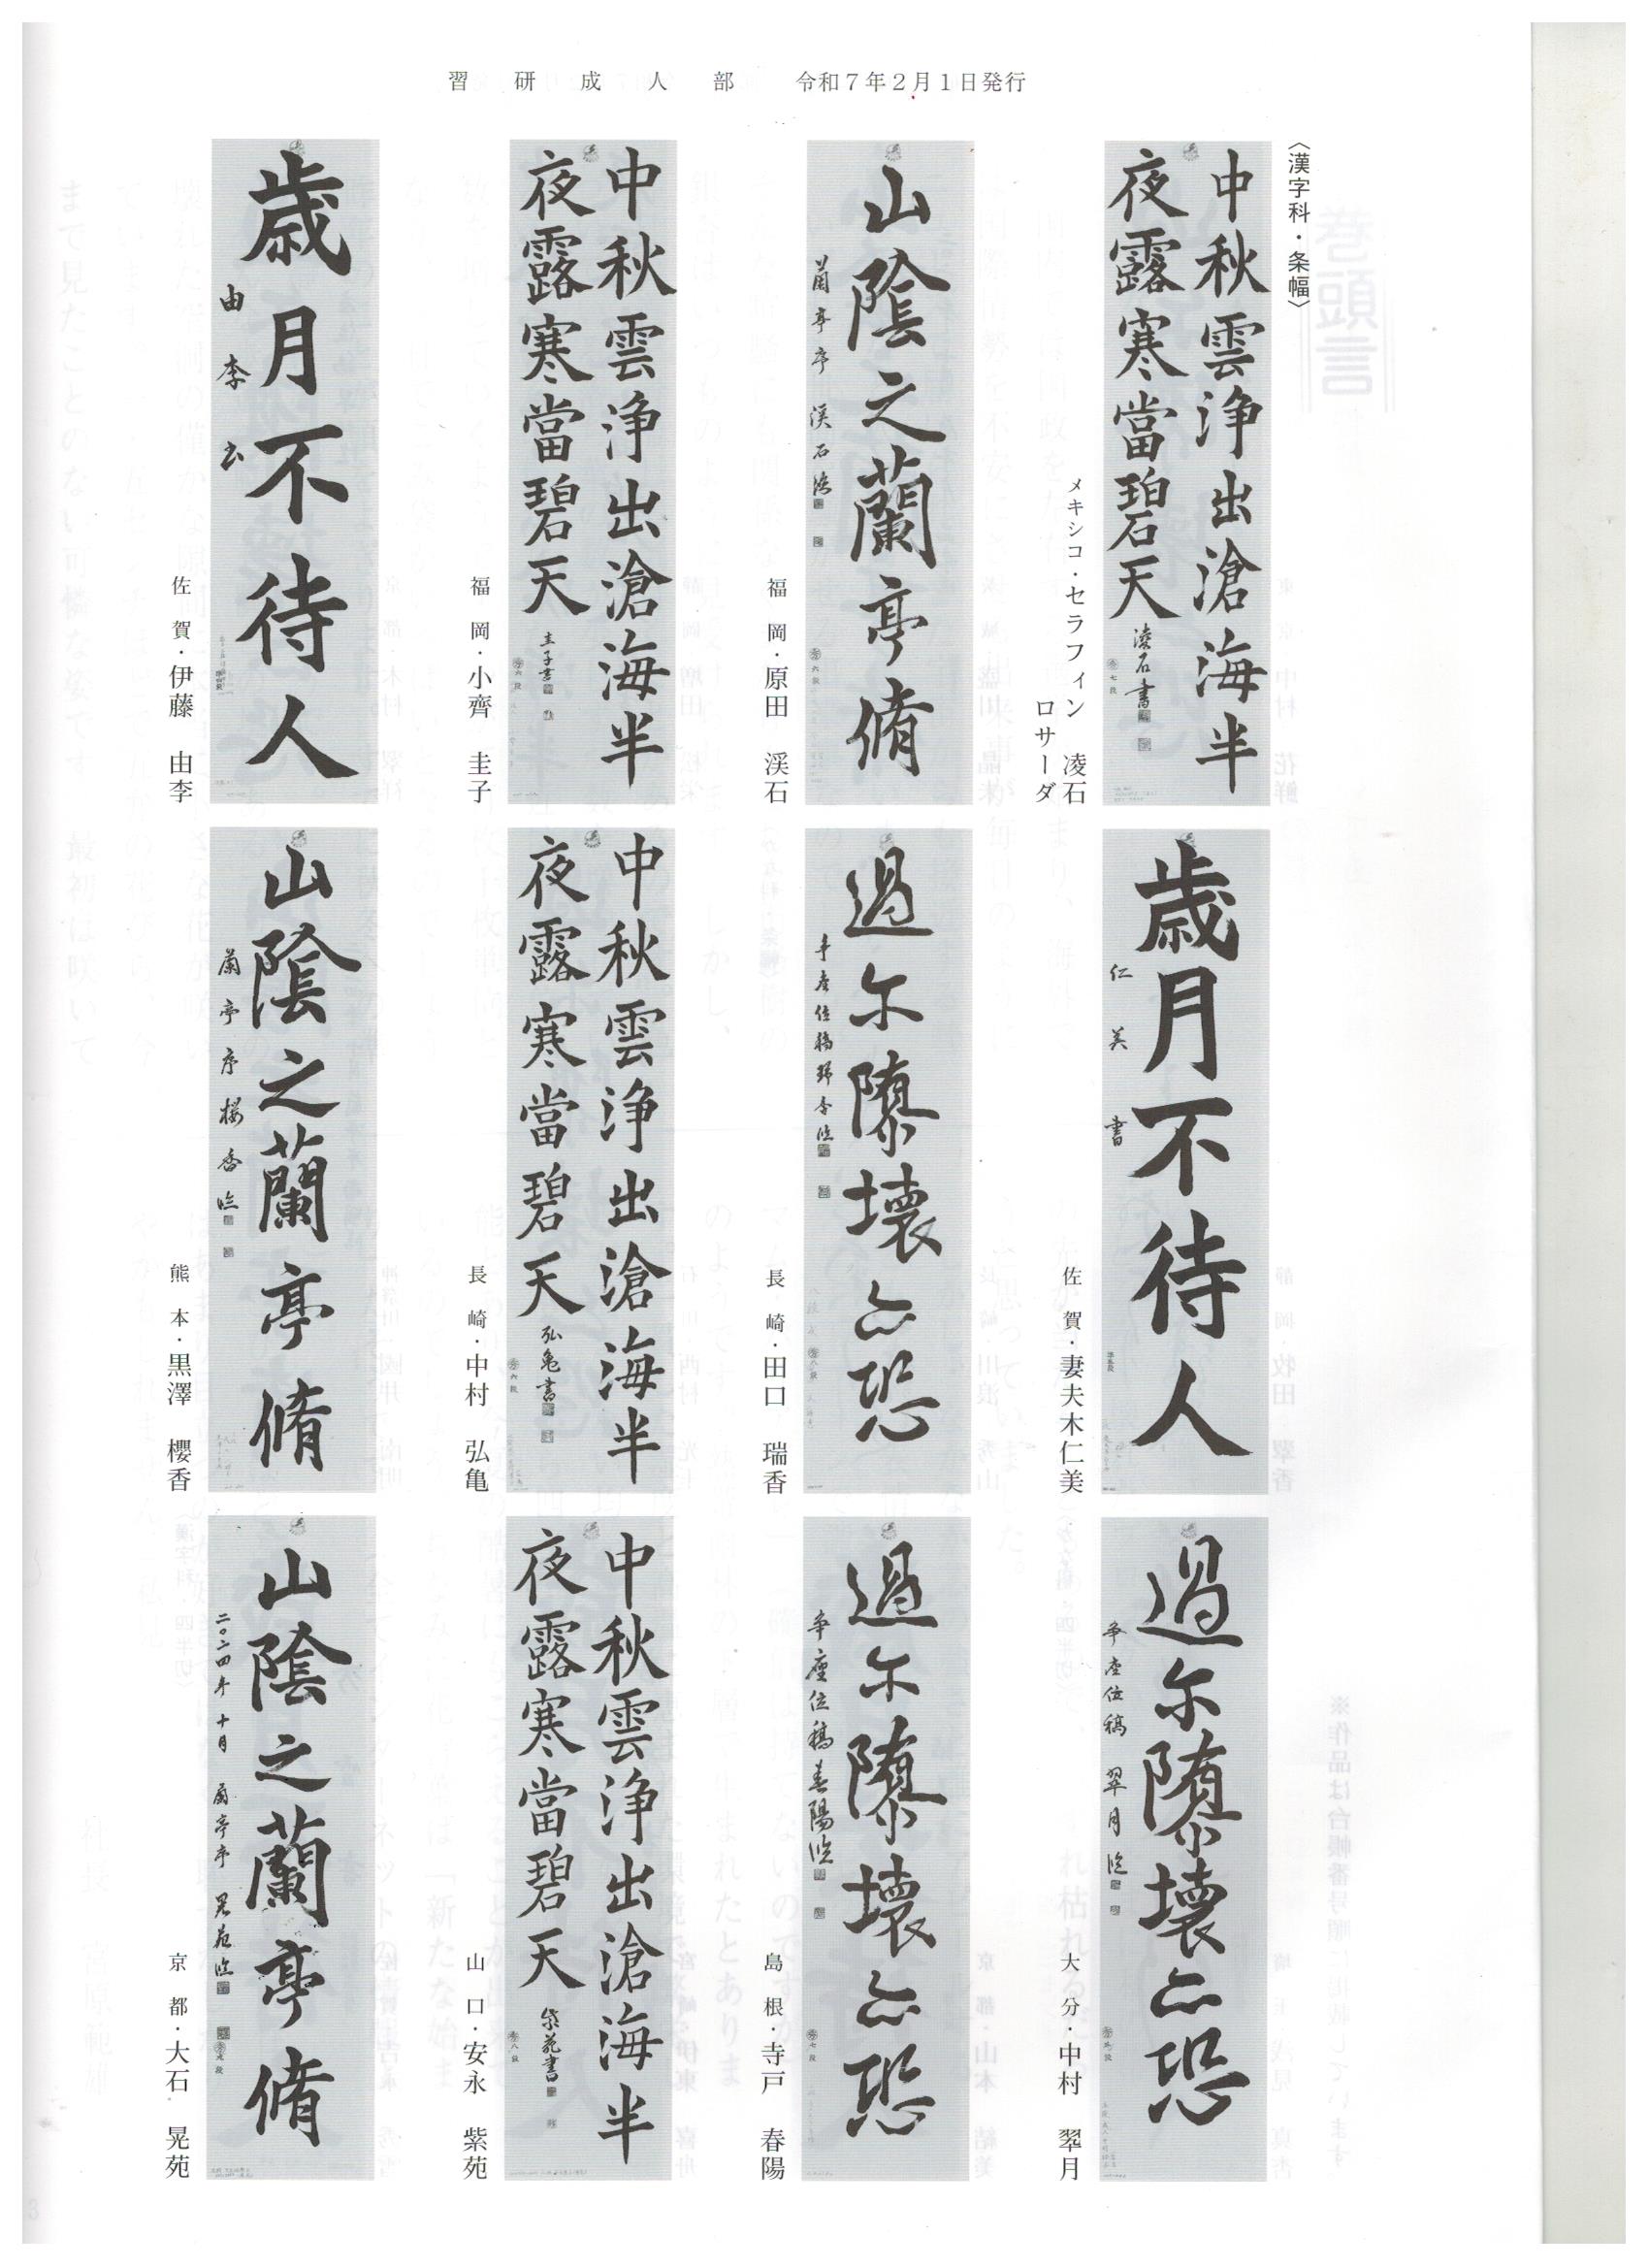 習研成人部 令和7年2月1日発行
〈漢字科・条幅〉
中秋雲浄出滄海半
夜露寒當碧天
凌石書
メキシコ・セラフィン 凌石
ロサーダ
山陰之蘭亭脩
蘭亭序 渓石臨
福岡・原田 渓石
中秋雲浄出滄海半
夜露寒當碧天
圭子書
福岡・小齊 圭子
歳月不待人
由李書
佐賀・伊藤 由李
歳月不待人
仁美書
佐賀・妻夫木仁美
過尓隳壊亦恐
争座位稿瑞香臨
長崎・田口 瑞香
中秋雲浄出滄海半
夜露寒當碧天
弘亀書
長崎・中村 弘亀
山陰之蘭亭脩
蘭亭序櫻香臨
熊本・黒澤 櫻香
過尓隳壊亦恐
争座位稿 翠月臨
大分・中村 翠月
過尓隳壊亦恐
争座位稿春陽臨
島根・寺戸 春陽
中秋雲浄出滄海半
夜露寒當碧天
紫苑書
山口・安永 紫苑
山陰之蘭亭脩
二〇二四年十月 蘭亭序 晃苑臨
京都・大石 晃苑